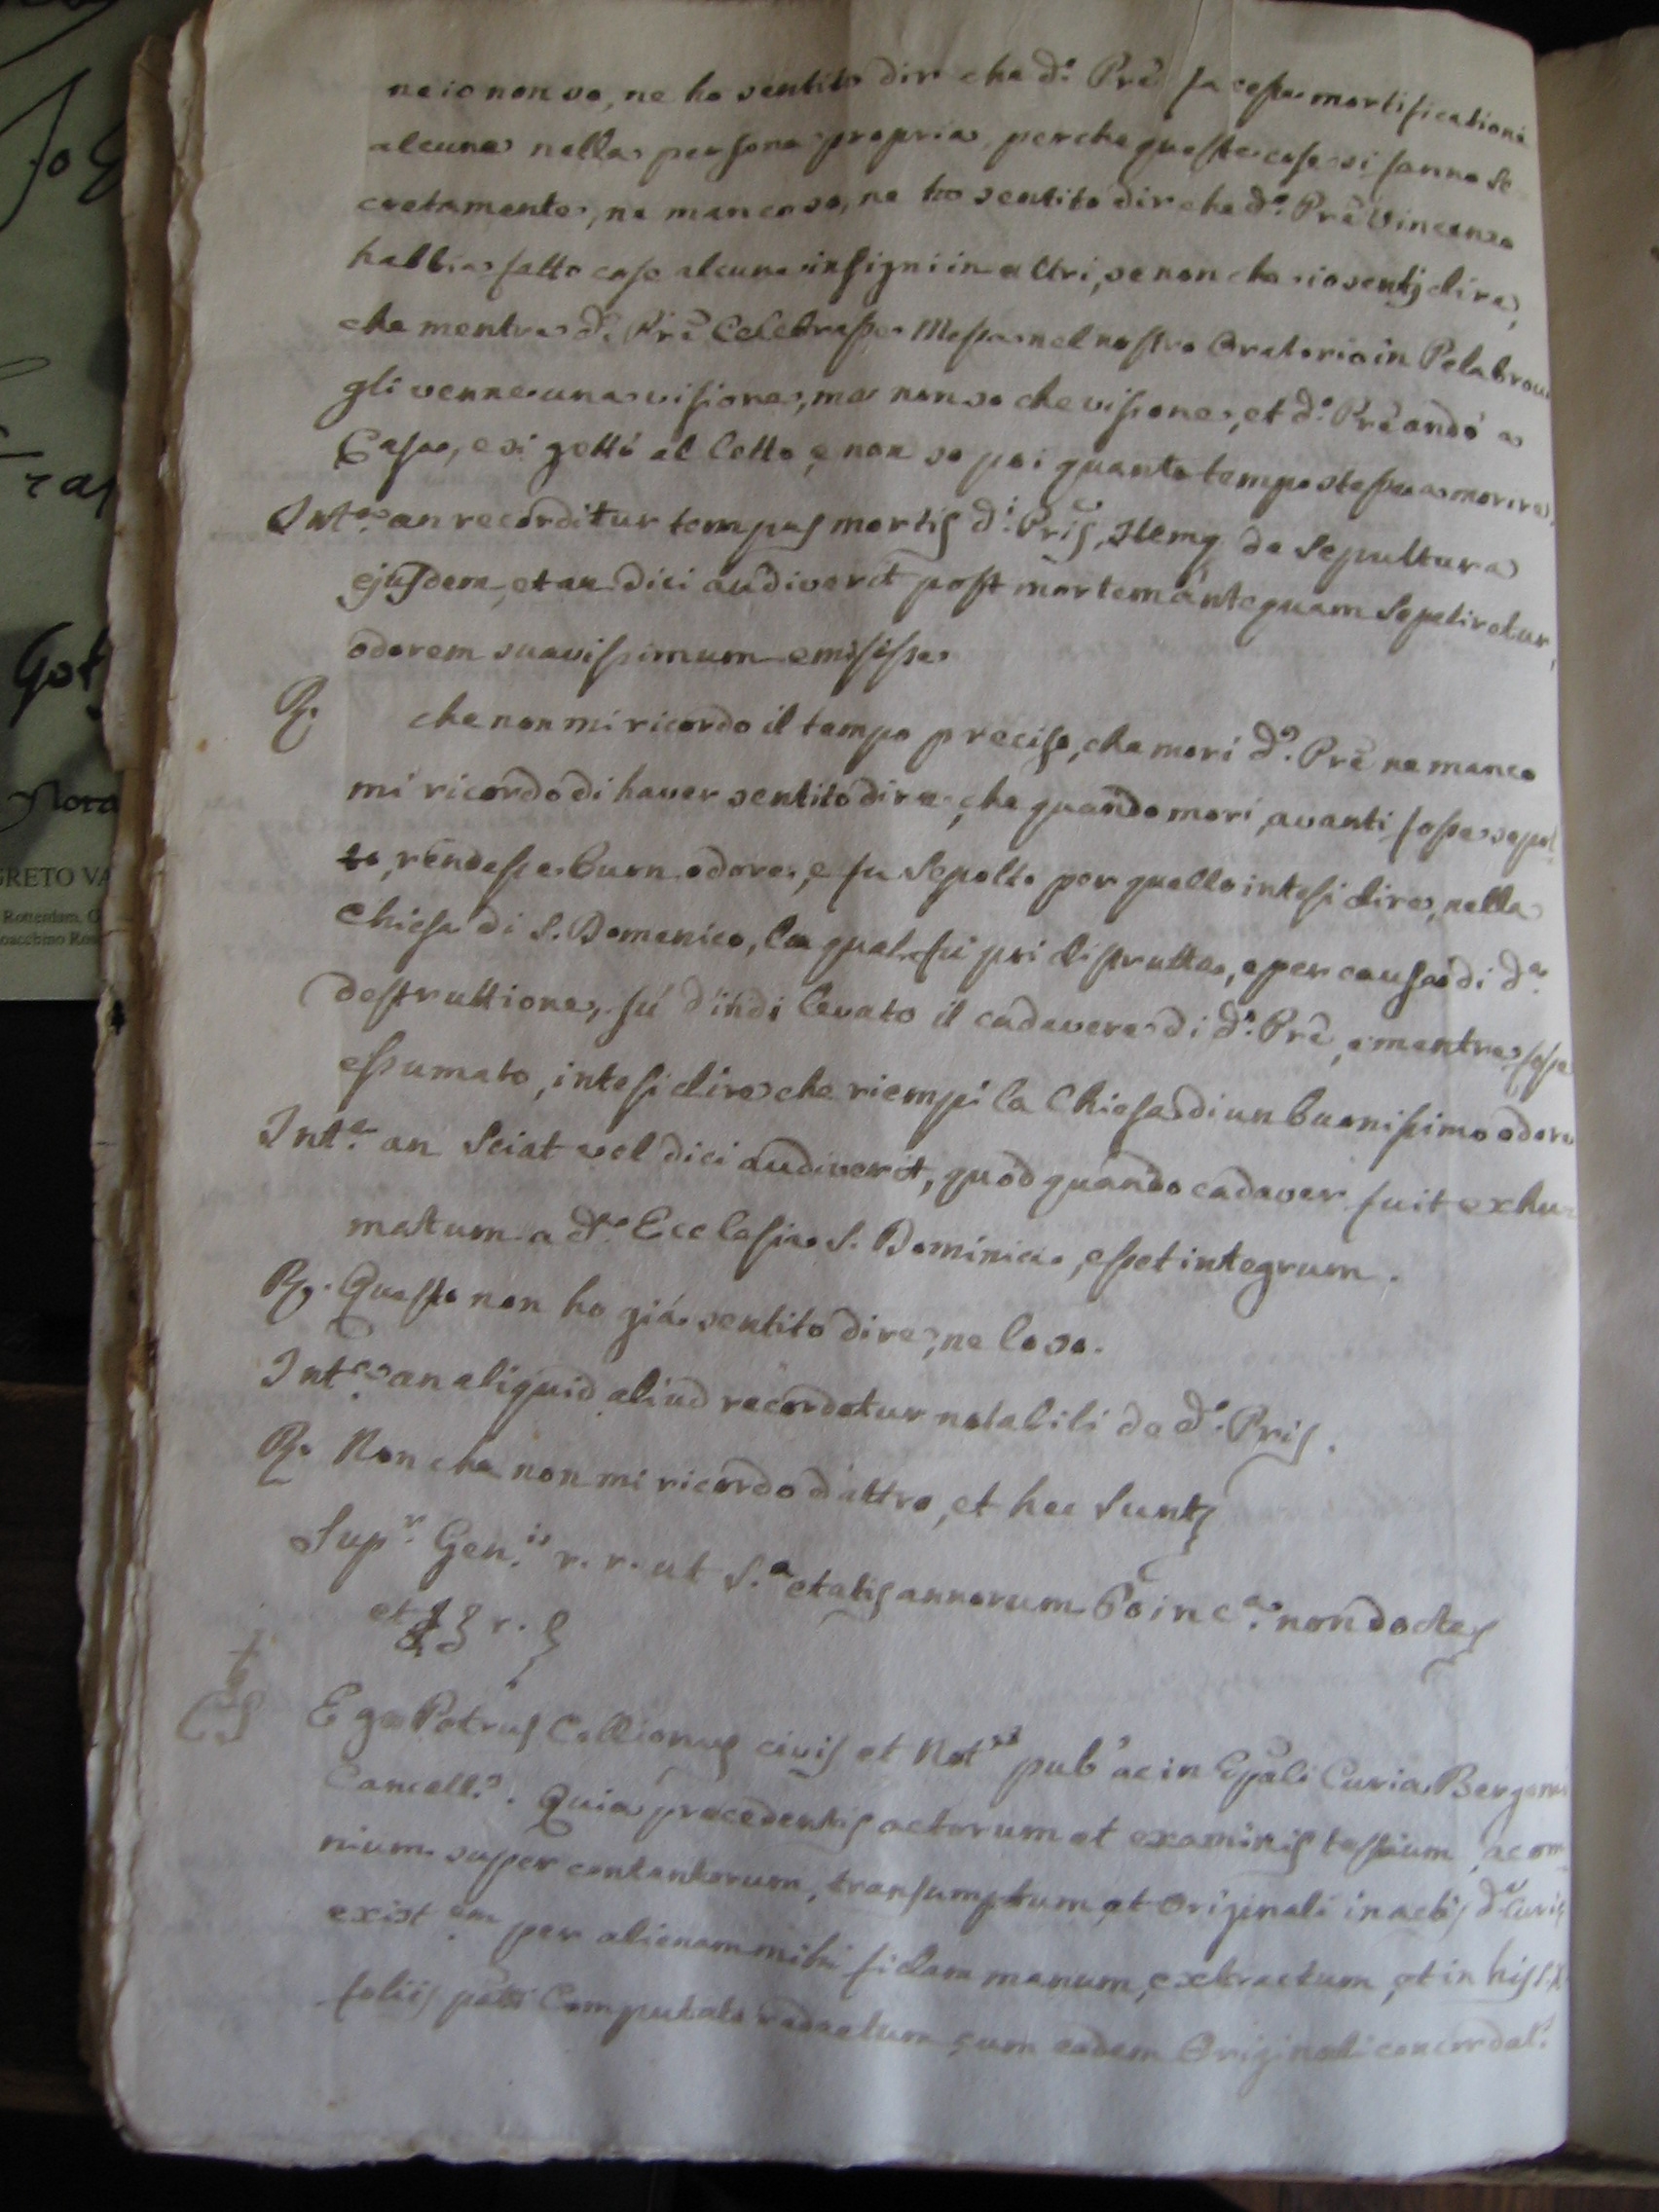 Got
Nora
GRETO VA
Rotterdam, G
ne io non so, ne ho sentito dir che d.º Prê facesse mortificationi
alcune nella persona propria, perche queste cose si fanno se-
cretamente, ne manco so, ne ho sentito dir che d.º Prê Vincenzo
habbia fatto cose alcune insigni in altri, se non che io sentij dire,
che mentre d.º Prê Celebrasse Messa nel nostro Oratorio in Pelabrocco
gli venne una visione, ma non so che visione, et d.º Prê andò a
Casa, e si gettò al letto, e non so poi quanto tempo stesse a morire.
Int.º an recorditur tempus mortis d.i Pris, Itemq de Sepultura
ejusdem, et an dici audiverit post mortem antequam sepeliretur,
odorem suavissimum emisisse
R. che non mi ricordo il tempo preciso, che morì d.º Prê ne manco
mi ricordo di haver sentito dire, che quando morì, avanti fosse sepol
to, rendesse buon odore, e fu Sepolto per quello intesi dire, nella
Chiesa di S. Domenico, la qual fù poi distrutta, e per causa di d.ª
destruttione, fù d'indi levato il cadavere di d.º Prê, e mentre fosse
essumato, intesi dire che riempì la Chiesa di un buonissimo odore
Int.º an sciat vel dici audiverit, quod quando cadaver fuit exhu-
matum a d.ª Ecclesia S. Dominici, esset integrum.
R. Questo non ho già sentito dire, ne lo so.
Int.º an aliquid aliud recordetur notabili de d.º Pris.
R. Non che non mi ricordo d'altro, et hec sunt
Sup.r Gen.is r. r. ut S.ª etatis annorum 60 in c.ª non doctes
et r.
CS
Ego Petrus Collionus civis et Not.us pub.s ac in Epâli Curia Bergomi
Cancell.s. Quia precedentis actorum et examinis testium, ac om
nium super contentorum, transumptum et Originali in actis d.ª Curie
exist.em per alienam mihi fidam manum, extractum, et in his
foliis computato redactum cum eodem Originali concordat.